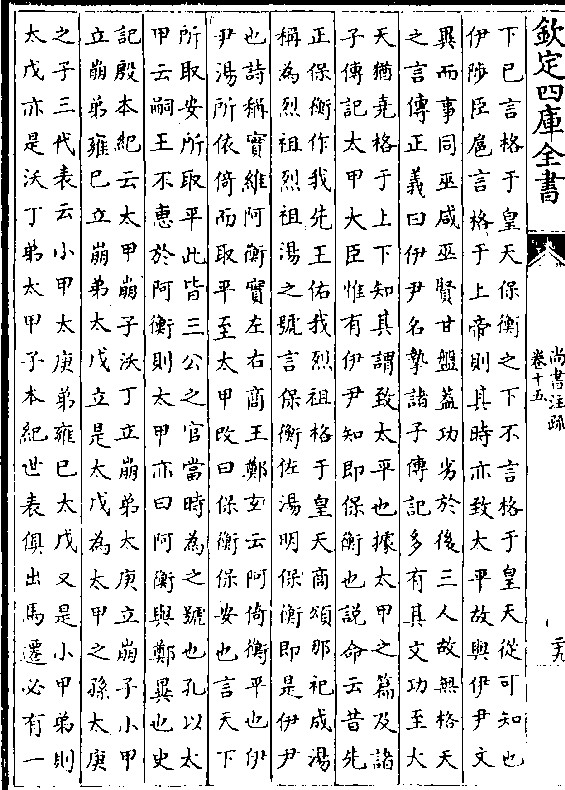 欽定四庫全書
尚書注疏
卷十五
二十九
下已言格于皇天保衡之下不言格于皇天從可知也
伊陟臣扈言格于上帝則其時亦致大平故與伊尹文
異而事同巫咸巫賢甘盤蓋功劣於後三人故無格天
之言傳正義曰伊尹名摯諸子傳記多有其文功至大
天猶堯格于上下知其謂致太平也據太甲之篇及諸
子傳記太甲大臣惟有伊尹知即保衡也說命云昔先
正保衡作我先王佑我烈祖格于皇天商頌那祀成湯
稱為烈祖烈祖湯之號言保衡佐湯明保衡即是伊尹
也詩稱實維阿衡實左右商王鄭玄云阿倚衡平也伊
尹湯所依倚而取平至太甲改曰保衡保安也言天下
所取安所取平此皆三公之官當時為之號也孔以太
甲云嗣王不惠於阿衡則太甲亦曰阿衡與鄭異也史
記殷本紀云太甲崩子沃丁立崩弟太庚立崩子小甲
立崩弟雍已立崩弟太戊立是太戊為太甲之孫太庚
之子三代表云小甲太庚弟雍已太戊又是小甲弟則
太戊亦是沃丁弟太甲子本紀世表俱出馬遷必有一